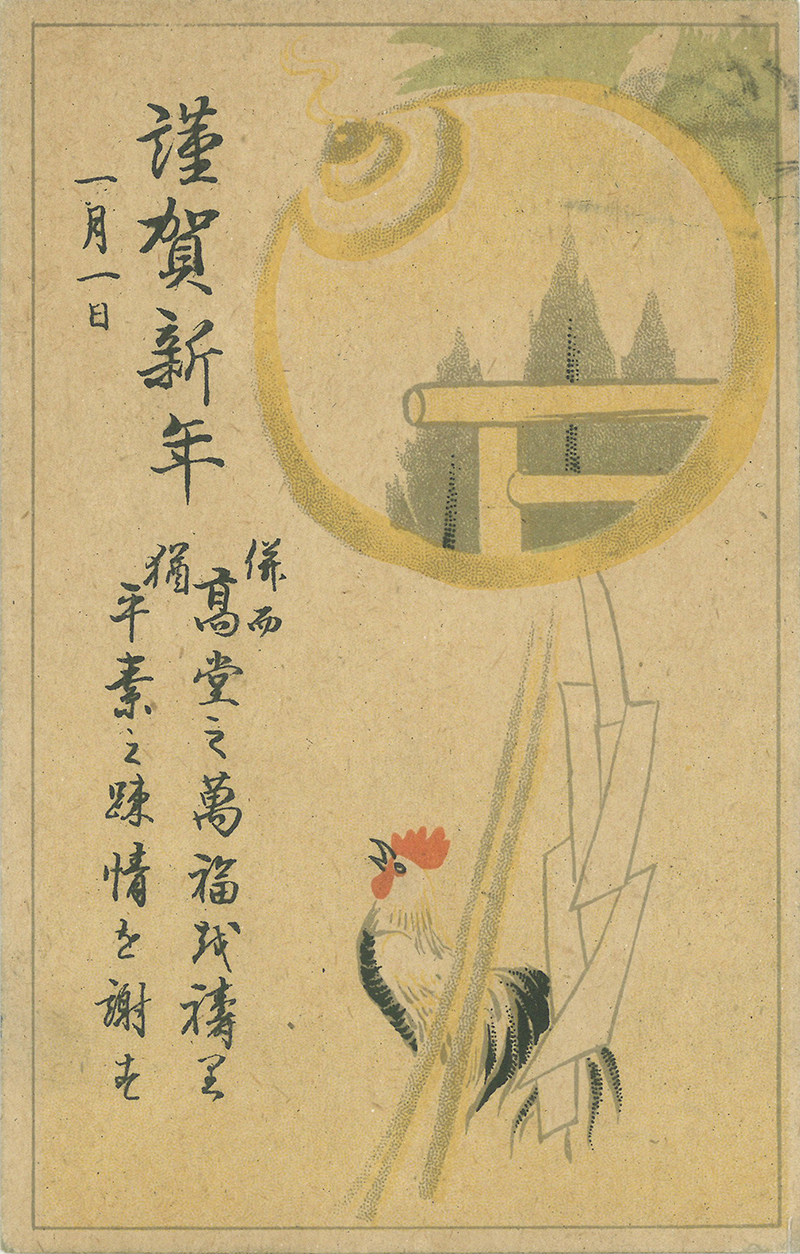 謹賀新年
一月一日
併而
高堂之萬福越禱里
猶
平素之踈情を謝す